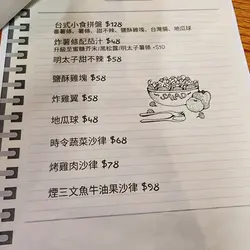 台式小食拼盤 $128
番薯條、薯條、甜不辣、鹽酥雞塊、台灣腸、地瓜球
炸薯條配茄汁 $48
升級至蜜糖芥末/黑松露/明太子薯條 +$10
明太子甜不辣 $58
鹽酥雞塊 $58
炸雞翼 $58
地瓜球 $48
時令蔬菜沙律 $68
烤雞肉沙律 $78
煙三文魚牛油果沙律 $98